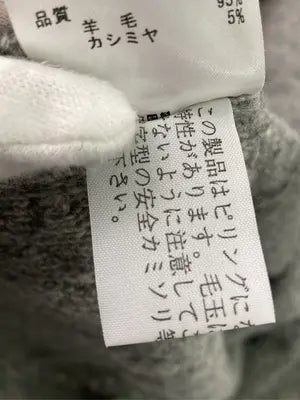 品質
羊毛 95%
カシミヤ 5%
この製品はピリングにな
性があります。毛玉に
ないように注意して
定型の安全カミソリ等
下さい。